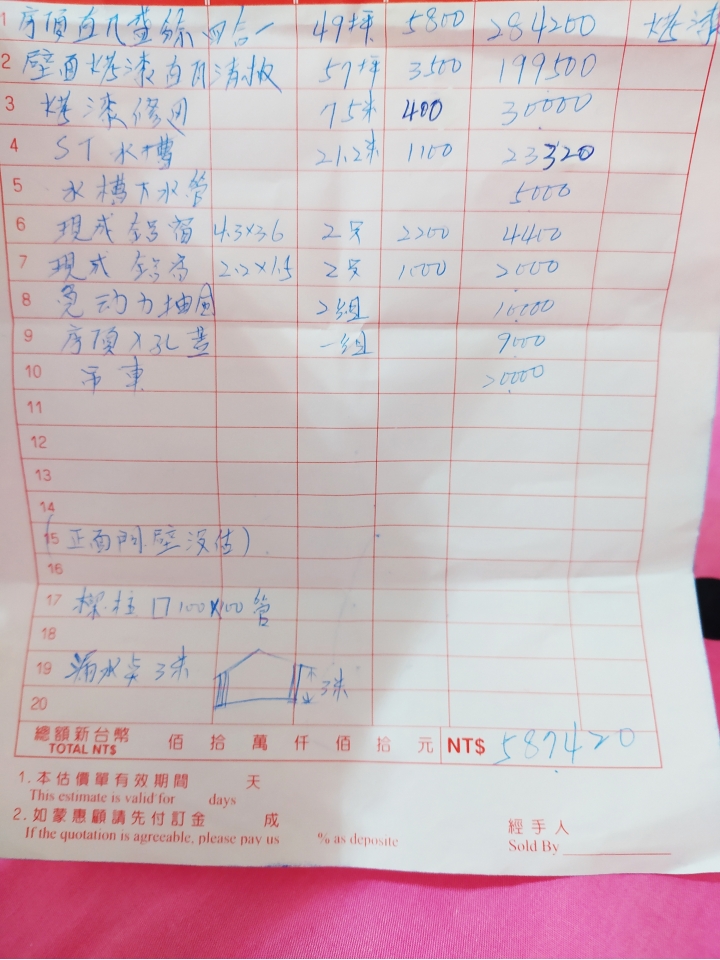 1 房頂百几盖鉩 四合一 49坪 5800 284200 烤漆
2 壁面烤漆百几清板 57坪 3500 199500
3 烤漆修边 75米 400 30000
4 ST水槽 21.2米 1100 23320
5 水槽下水管 5000
6 現成鋁窗 4.3×3.6 2支 2200 4400
7 現成鋁窗 2.2×1.5 2支 1000 2000
8 免动力抽風 2組 10000
9 房頂入孔蓋 一組 9000
10 吊車 20000
11
12
13
14
15 (正面門壁沒估)
16
17 樑柱口100×100管
18
19 滴水 3米 3米
20
總額新台幣 佰 拾 萬 仟 佰 拾 元 NT$ 587420
TOTAL NT$
1.本估價單有效期間 天
This estimate is valid for days
2.如蒙惠顧請先付訂金 成
If the quotation is agreeable, please pay us % as deposite
經手人
Sold By